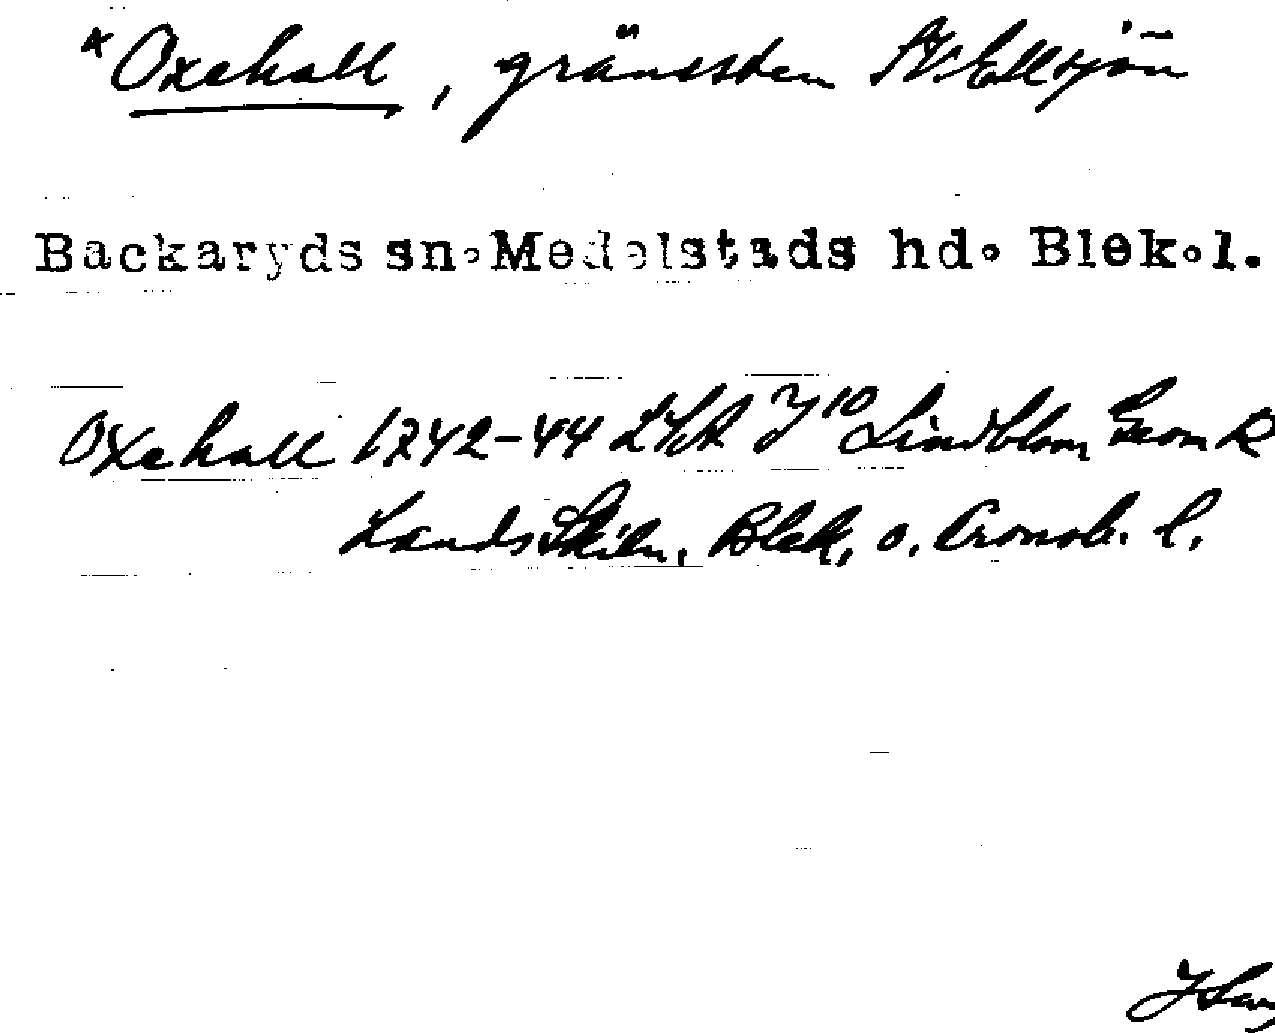 *Oxehall, gränssten St. Ellsjön
Backaryds sn.Medelstads hd. Blek.l.
Oxehall 1742-44 LSA Y10 Lindblom Geom R
Landsskiln. Blek. o. Cronob. l.